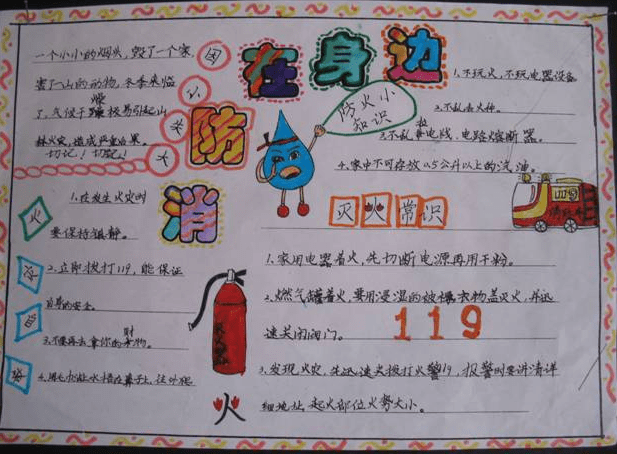 消防在身边
一个小小的烟头，毁了一个家，
害了一山的动物，冬季来临
了，气候干燥极易引起山
林火灾，造成严重后果。
切记！切记！
防火小
知识
1.不玩火，不玩电器设备
2.不乱丢火种。
3.不乱私电线、电路熔断器。
4.家中不可存放0.5公升以上的汽油。
火
1.在发生火灾时
要保持镇静。
2.立即拨打119，能保证
自身的安全。
3.不要再去拿你的财物。
4.用
水捂在鼻子上，往外爬
灭火常识
1.家用电器着火，先切断电源再用干粉。
2.燃气罐着火，要用浸湿的被褥衣物盖灭火，并迅
速关闭阀门。
119
3.发现火灾，先迅速火拨打火警119，报警时要讲清详
细地址、起火部位火势大小。
火